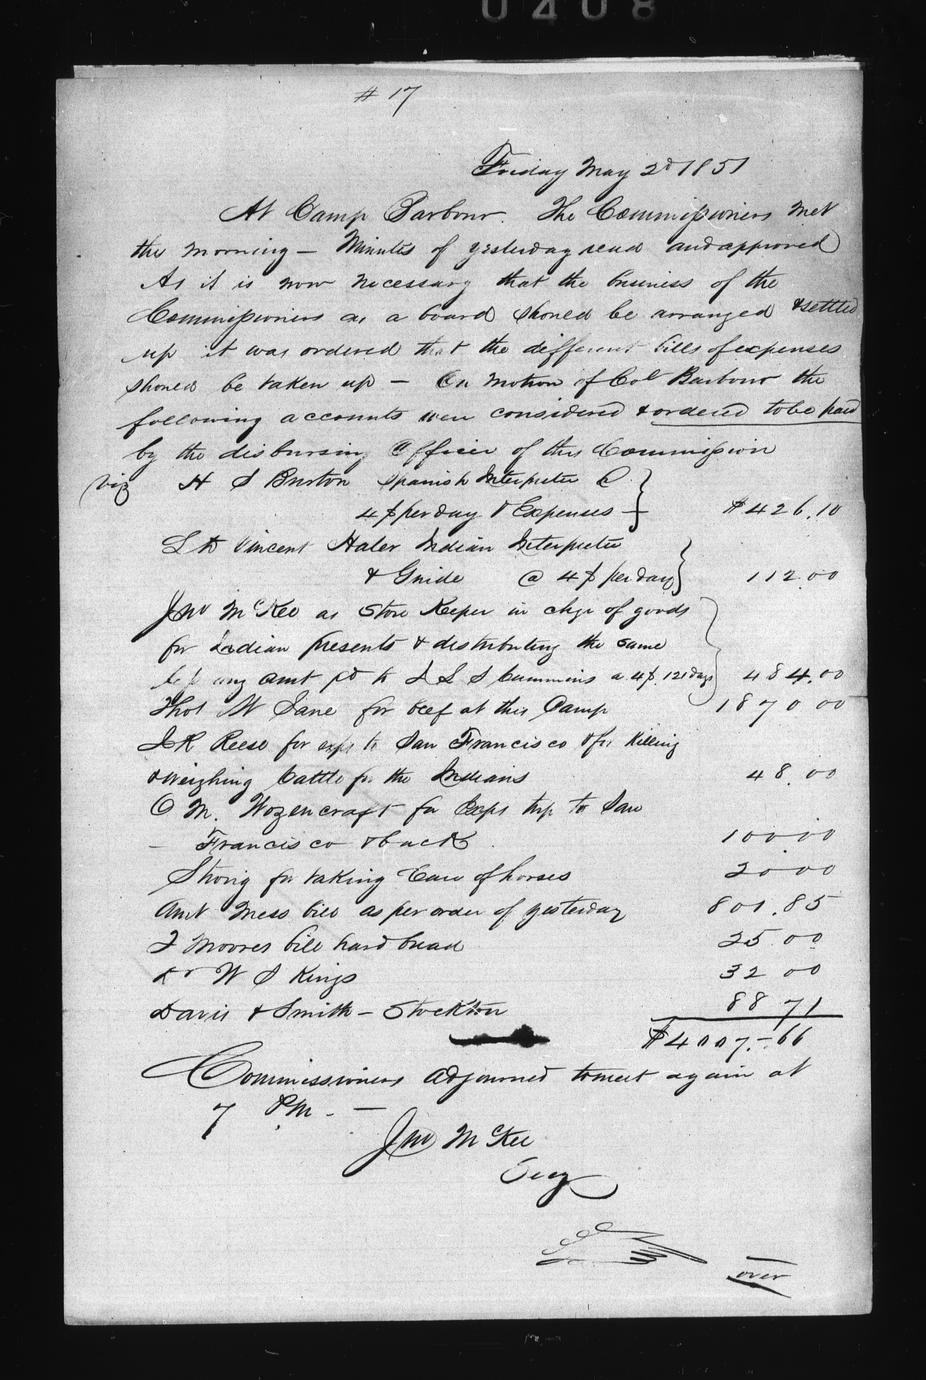 0408
# 17
Friday May 2d 1851
At Camp Barbour. The Commissioners met
the morning — Minutes of yesterday read and approved
As it is now necessary that the business of the
Commissioners as a board should be arranged & settled
up it was ordered that the different bills of expenses
should be taken up — On motion of Col Barbour the
following accounts were considered & ordered to be paid
by the disbursing Officer of this Commission
Viz H S Burton Spanish Interpreter @
4$ per day & Expenses — $426.10
Vincent Haler Indian Interpreter
& Guide @ 4$ per day 112.00
Jno McKee as Store Keeper in chge of goods
for Indian presents & distributing the same
any amt pd to Cummins a 4$. 121 days 484.00
Thos for beef at this Camp 1870 00
J R Reese for exps to San Francisco & for killing
& weighing Cattle for the Indians 48.00
O M. Wozencraft for Exps trip to San
— Francisco & back 100.00
Strong for taking Care of horses 20.00
Amt Mess bill as per order of yesterday 801.85
Moores bill hard bread 25.00
W S Kings 32 00
Davis & Smith — Stockton 88 71
$4007.—66
Commissioners adjourned to meet again at
7 P.M. —
Jno McKee
Secy
over